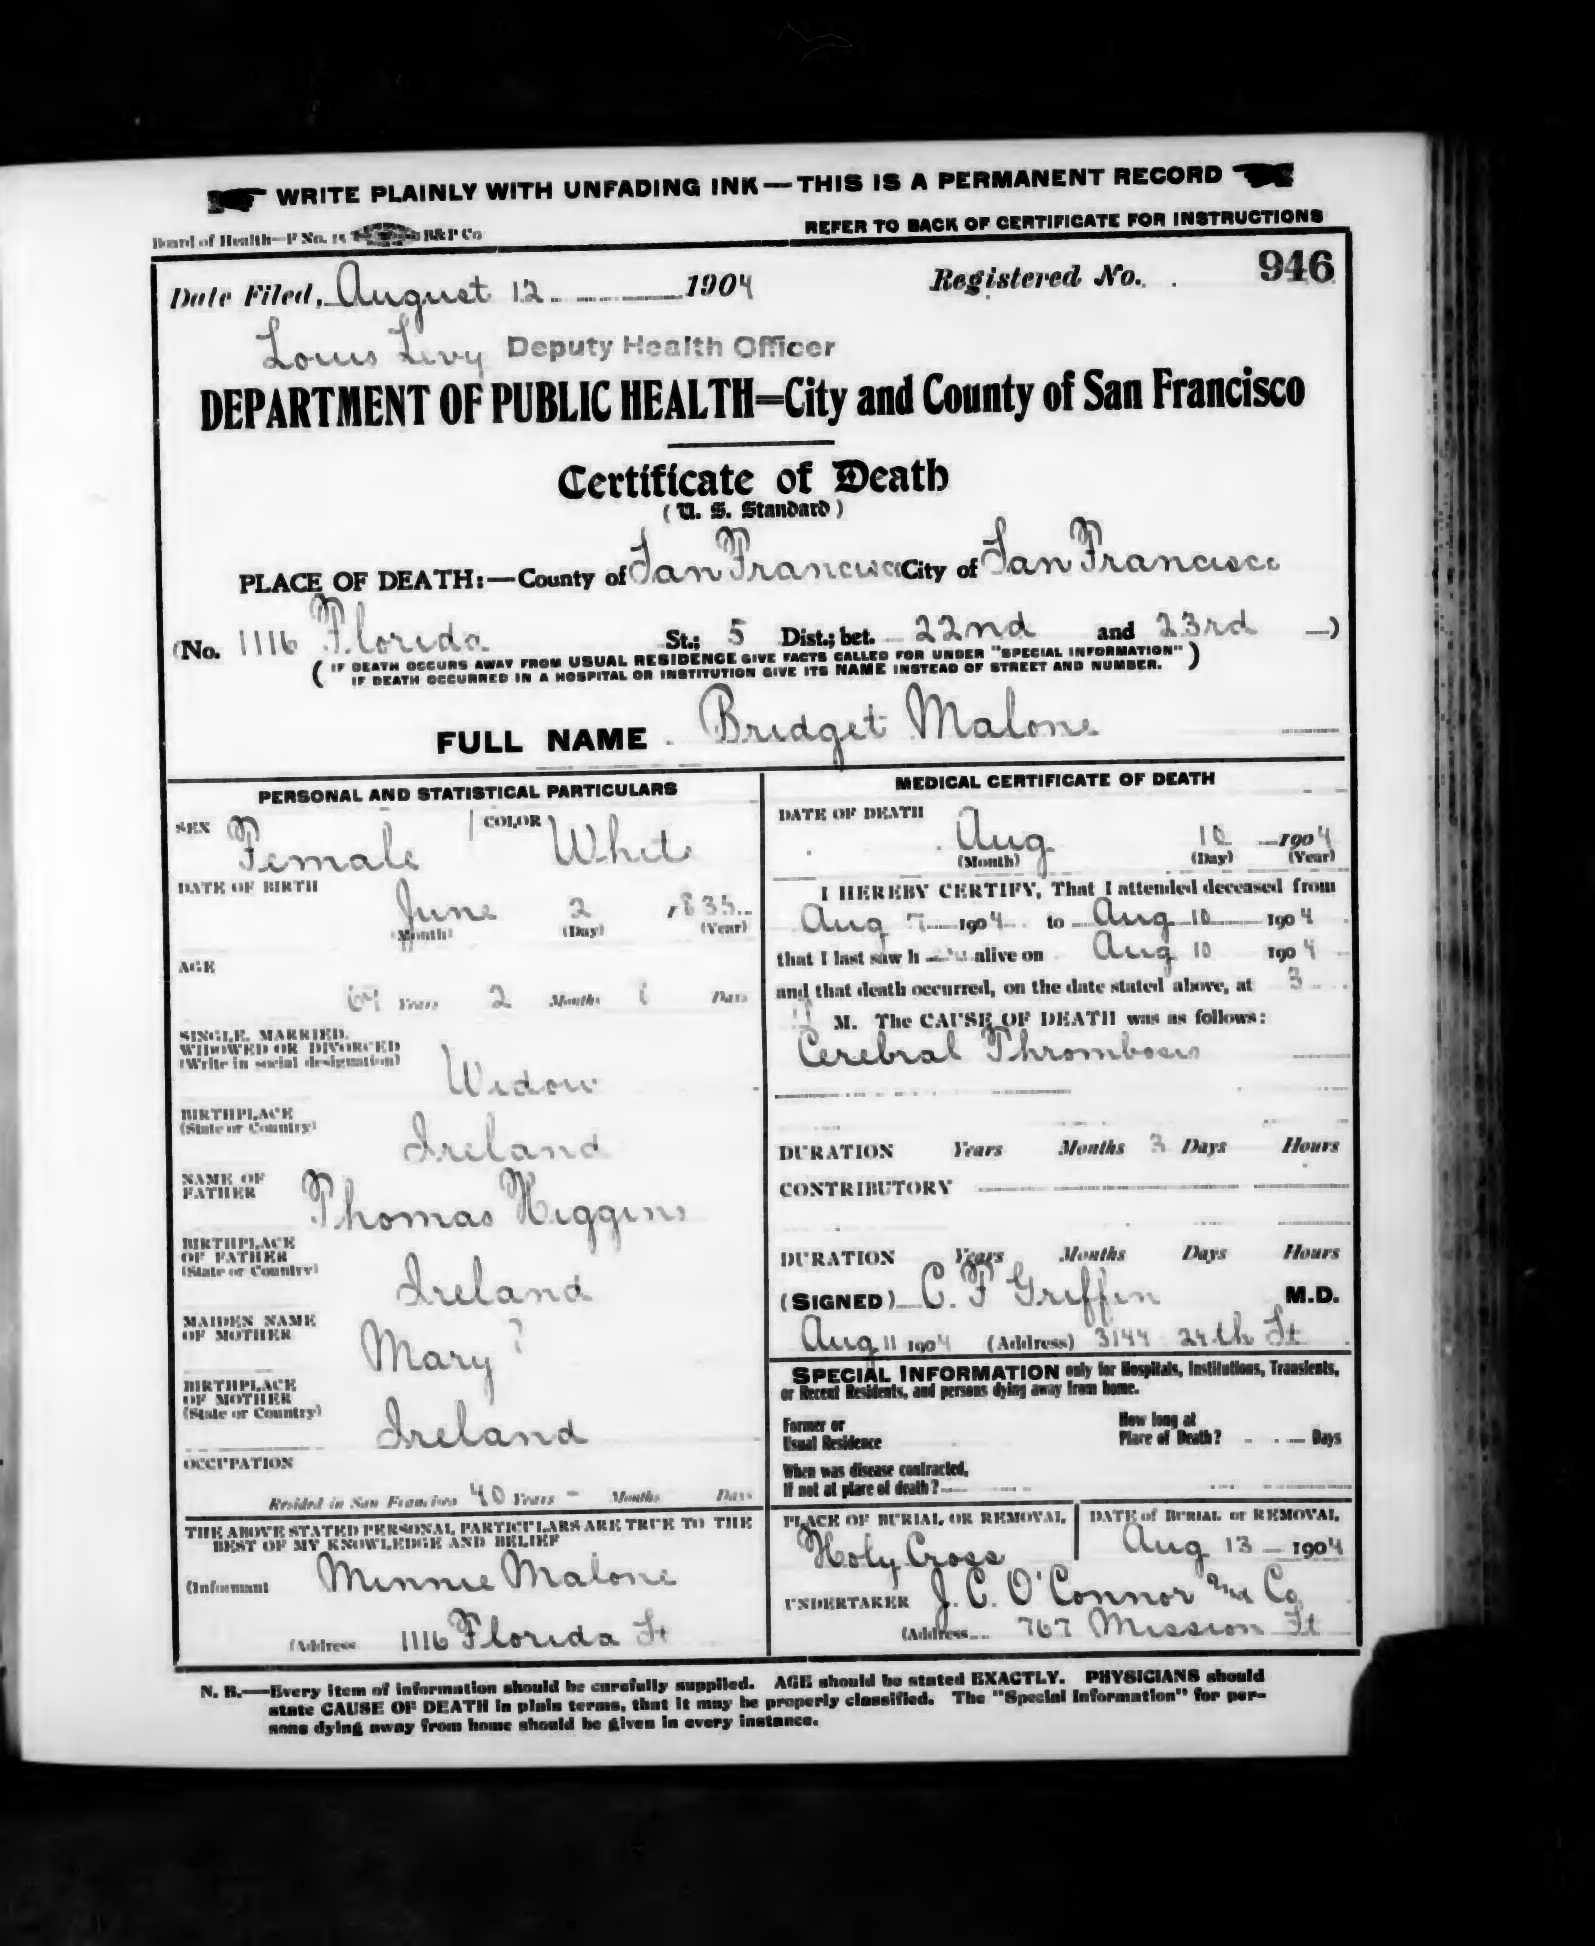 WRITE PLAINLY WITH UNFADING INK—THIS IS A PERMANENT RECORD
Board of Health—F No. 15 B&P Co
REFER TO BACK OF CERTIFICATE FOR INSTRUCTIONS
Date Filed, August 12 1904 Registered No. 946
Louis Levy Deputy Health Officer
DEPARTMENT OF PUBLIC HEALTH=City and County of San Francisco
Certificate of Death
(U. S. Standard)
PLACE OF DEATH:—County of San Francisco City of San Francisco
(No. 1116 Florida St.; 5 Dist.; bet. 22nd and 23rd )
(IF DEATH OCCURS AWAY FROM USUAL RESIDENCE GIVE FACTS CALLED FOR UNDER "SPECIAL INFORMATION"
IF DEATH OCCURRED IN A HOSPITAL OR INSTITUTION GIVE ITS NAME INSTEAD OF STREET AND NUMBER.)
FULL NAME Bridget Malone
PERSONAL AND STATISTICAL PARTICULARS
SEX Female COLOR White
DATE OF BIRTH June 2 1835
(Month) (Day) (Year)
AGE
69 Years 2 Months Days
SINGLE, MARRIED,
WIDOWED OR DIVORCED
(Write in social designation)
Widow
BIRTHPLACE
(State or Country)
Ireland
NAME OF
FATHER
Thomas Higgins
BIRTHPLACE
OF FATHER
(State or Country)
Ireland
MAIDEN NAME
OF MOTHER
Mary ?
BIRTHPLACE
OF MOTHER
(State or Country)
Ireland
OCCUPATION
Resided in San Francisco 40 Years - Months Days
THE ABOVE STATED PERSONAL PARTICULARS ARE TRUE TO THE
BEST OF MY KNOWLEDGE AND BELIEF
(Informant Minnie Malone
(Address 1116 Florida St
MEDICAL CERTIFICATE OF DEATH
DATE OF DEATH
Aug 10 1904
(Month) (Day) (Year)
I HEREBY CERTIFY, That I attended deceased from
Aug 7 1904 to Aug 10 1904
that I last saw h er alive on Aug 10 1904
and that death occurred, on the date stated above, at 3
M. The CAUSE OF DEATH was as follows:
Cerebral Thrombosis
DURATION Years Months 3 Days Hours
CONTRIBUTORY
DURATION Years Months Days Hours
(SIGNED) C. F Griffin M.D.
Aug 11 1904 (Address) 3144 24th St
SPECIAL INFORMATION only for Hospitals, Institutions, Transients,
or Recent Residents, and persons dying away from home.
Former or
Usual Residence
How long at
Place of Death? Days
When was disease contracted,
If not at place of death?
PLACE OF BURIAL OR REMOVAL
Holy Cross
DATE of BURIAL or REMOVAL
Aug 13 1904
UNDERTAKER J. C. O'Connor and Co
(Address 767 Mission St
N. B.—Every item of information should be carefully supplied. AGE should be stated EXACTLY. PHYSICIANS should
state CAUSE OF DEATH in plain terms, that it may be properly classified. The "Special Information" for per-
sons dying away from home should be given in every instance.